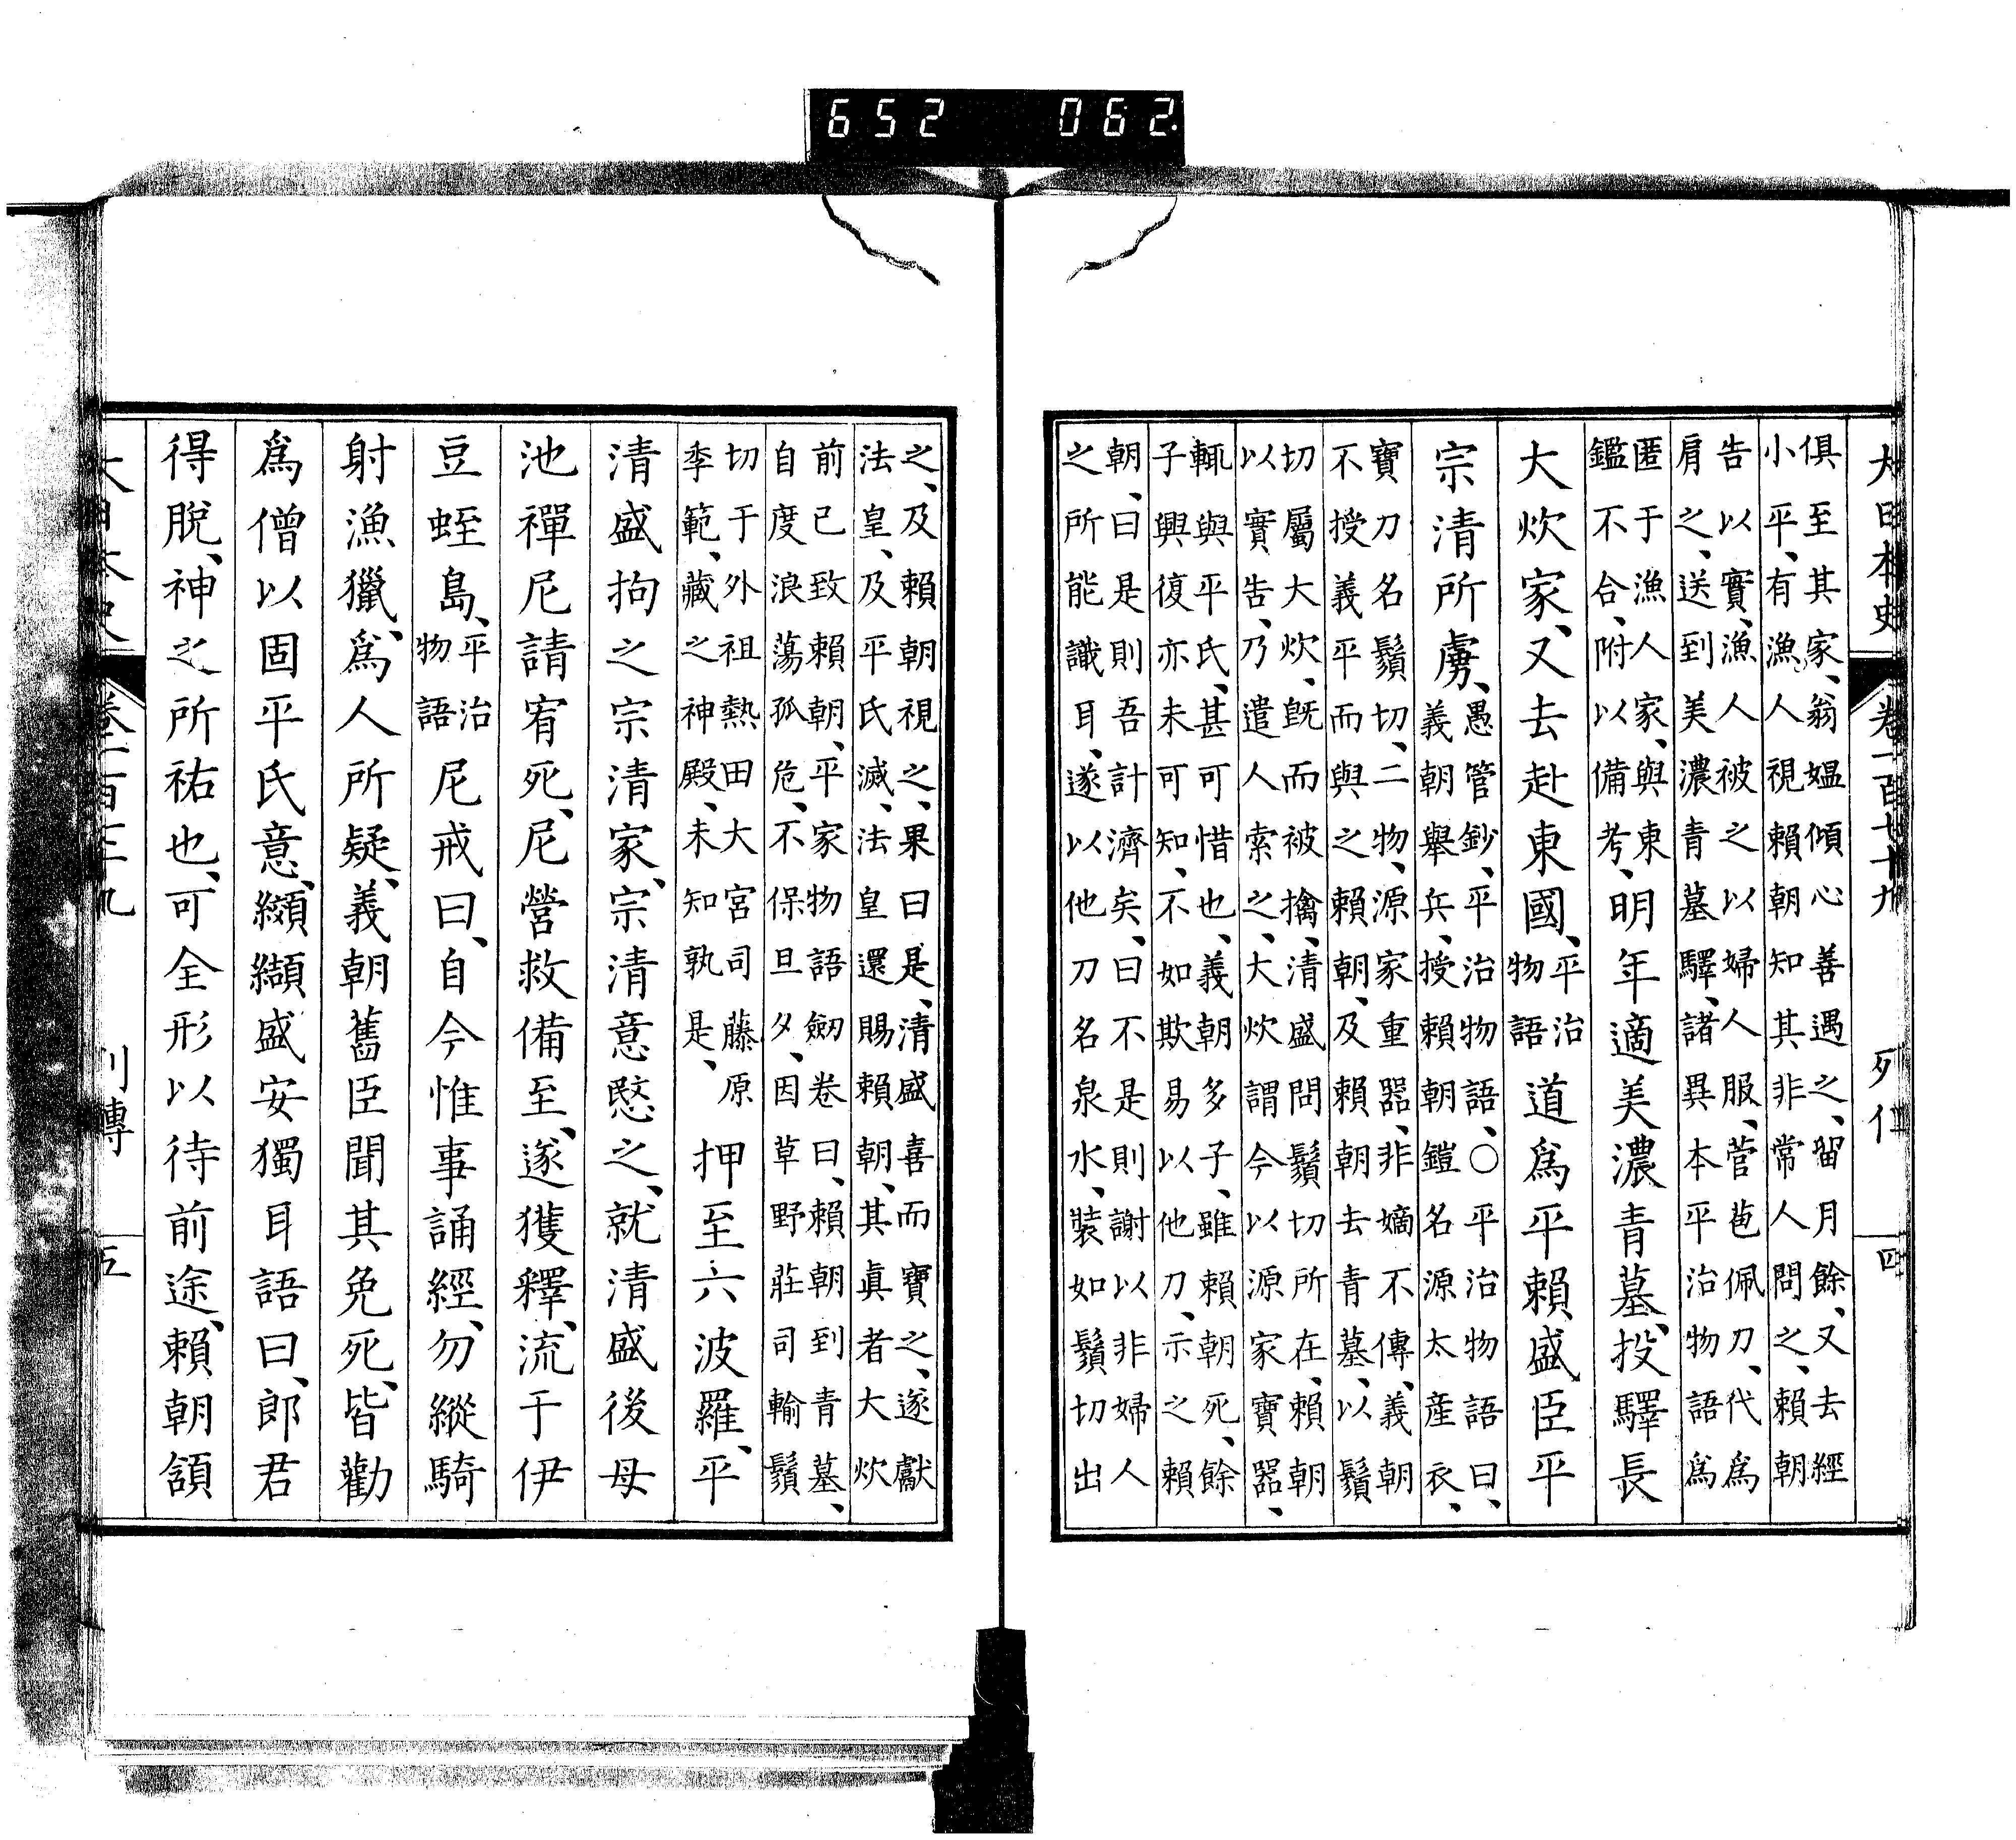 652 062
大日本史 卷一百七十九 列傳 四
俱至其家、翁媼傾心善遇之、留月餘、又去經
小平、有漁人視賴朝知其非常人問之、賴朝
告以實、漁人被之以婦人服、菅苞佩刀、代爲
肩之、送到美濃青墓驛、諸異本平治物語爲
匿于漁人家、與東
鑑不合、附以備考、
明年適美濃青墓、投驛長
大炊家、又去赴東國、平治物語道爲平賴盛臣平
宗清所虜、
愚管鈔、平治物語、○平治物語曰、
義朝舉兵、授賴朝鎧名源太産衣、
寶刀名鬚切、二物、源家重器、非嫡不傳、義朝
不授義平而與之賴朝、及賴朝去青墓、以鬚
切屬大炊、既而被擒、清盛問鬚切所在、賴朝
以實告、乃遣人索之、大炊謂今以源家寶器、
輒與平氏、甚可惜也、義朝多子、雖賴朝死、餘
子興復亦未可知、不如欺易以他刀、示之賴
朝、曰是則吾計濟矣、曰不是則謝以非婦人
之所能識耳、遂以他刀名泉水、裝如鬚切出
之、及賴朝視之、果曰是、清盛喜而寶之、遂獻
法皇、及平氏滅、法皇還賜賴朝、其眞者大炊
前已致賴朝、平家物語劒卷曰、賴朝到青墓、
自度浪蕩孤危、不保旦夕、因草野莊司輸鬚
切于外祖熱田大宮司藤原
季範、藏之神殿、未知孰是、
押至六波羅、平
清盛拘之宗清家、宗清意愍之、就清盛後母
池禪尼請宥死、尼營救備至、遂獲釋、流于伊
豆蛭島、平治物語尼戒曰、自今惟事誦經、勿縱騎
射漁獵、爲人所疑、義朝舊臣聞其免死、皆勸
爲僧以固平氏意、纐纈盛安獨耳語曰、郎君
得脫、神之所祐也、可全形以待前途、賴朝頷
大日本史 卷一百七十九 列傳 五